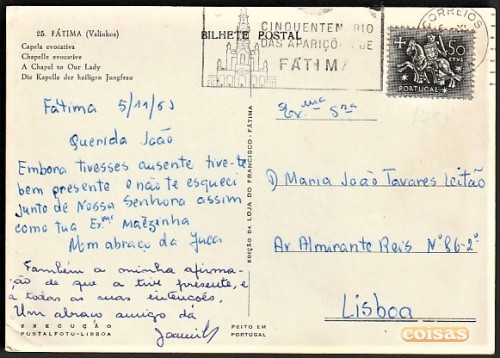 25. FÁTIMA (Valinhos)
Capela evocativa
Chapelle evocative
A Chapel to Our Lady
Die Kapelle der heiligen Jungfrau
BILHETE POSTAL
CINQUENTENÁRIO
DAS APARIÇÕES DE
FÁTIMA
CORREIOS
50
CTVS.
PORTUGAL
Fátima 5/11/63
Querida João
Embora tivesses ausente tive-te
bem presente e não te esqueci
junto de Nossa Senhora assim
como tua Exma Mãezinha
Mom abraço da Juca
Também a minha afirma-
ção de que a tive presente, e
a todas as suas intenções.
Um abraço amigo da
EXECUÇÃO
FUSTALFOTO-LISBOA
FEITO EM
PORTUGAL
EDIÇÃO DA LOJA DO FRANCISCO - FÁTIMA
Exma Sra
D Maria João Tavares Leitão
Av Almirante Reis Nº 86-2º
Lisboa
coisas